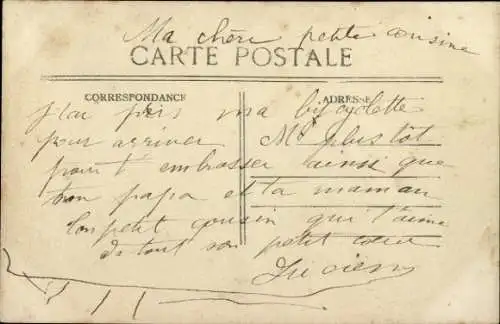 Ma chère petite cousine
CARTE POSTALE
CORRESPONDANCE
ADRESSE
j'ai pris ma bicyclette
pour arriver plus tôt
pour t'embrasser ainsi que
ton papa et ta maman
ton petit cousin qui t'aime
de tout son petit cœur
Lucien